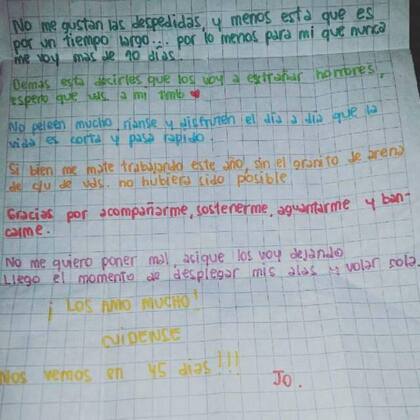 No me gustan las despedidas, y menos esta que es
por un tiempo largo... por lo menos para mi que nunca
me voy mas de 10 dias.
Demas esta decirles que los voy a extrañar hombres,
espero que uds. a mi tmb ♥
No peleen mucho, rianse y disfruten el dia a dia que la
vida es corta y pasa rapido.
Si bien me mate trabajando este año, sin el granito de arena
de c/u de uds. no hubiera sido posible
Gracias por acompañarme, sostenerme, aguantarme y ban-
carme.
No me quiero poner mal, asique los voy dejando
Llego el momento de desplegar mis alas y volar sola.
¡ LOS AMO MUCHO!
CUIDENSE
Nos vemos en 45 dias!!!
Jo.